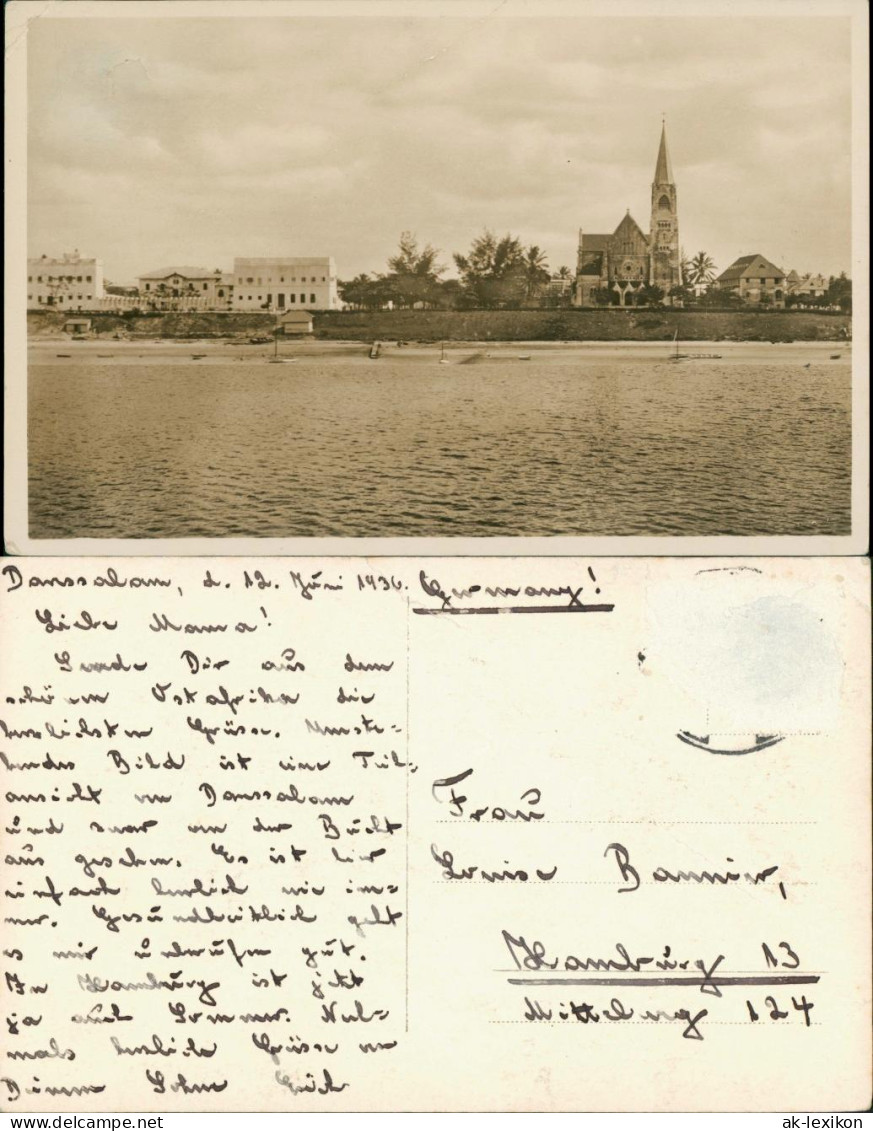 Darssalam, d. 12. Juni 1936.
Liebe Mama!
Sende Dir aus dem
schönen Ostafrika die
herzlichsten Grüsse. Umste-
hendes Bild ist eine Teil-
ansicht von Darssalam
und zwar von der Bucht
aus gesehen. Es ist hier
einfach herrlich wie im-
mer. Gesundheitlich geht
es mir unberufen gut.
In Hamburg ist jetzt
ja auch Sommer. Noch-
mals herzliche Grüsse von
Deinem Sohne Erich
Germany!
Frau
Louise Bannier,
Hamburg 13
Mittelweg 124
www.ansichtskarten-lexikon.de
ak-lexikon